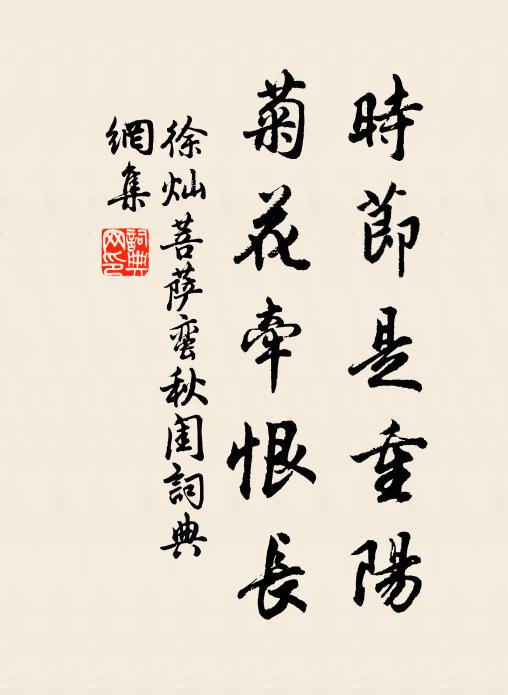 時節是重陽
菊花牽恨長
徐灿菩萨蛮秋闺詞典
網集
詞典
网印